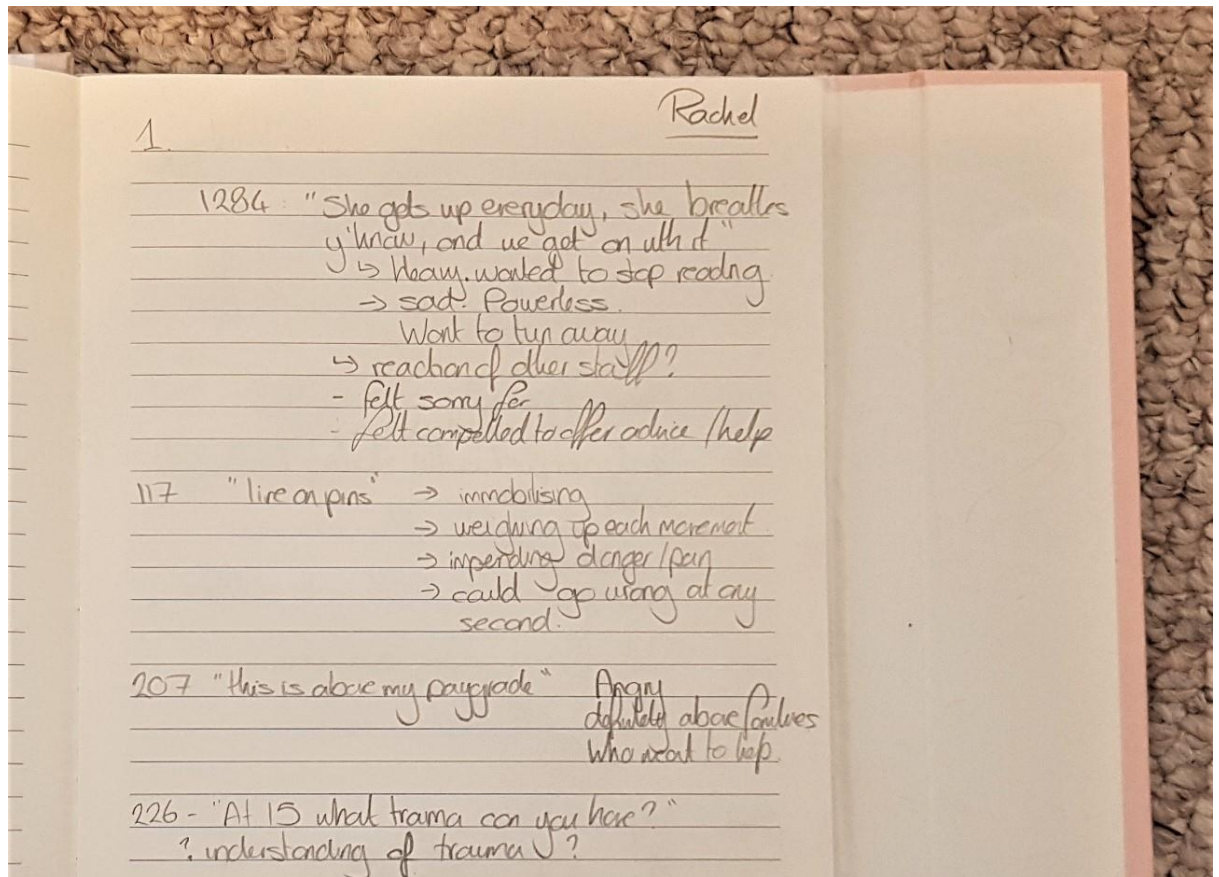 Rachel
1.
1284 "She gets up everyday, she breathes
y'know, and we get on with it"
↳ Heavy. wanted to stop reading
→ sad? Powerless.
Want to run away
↳ reaction of other staff?
- felt sorry for
- felt compelled to offer advice / help
117 "live on pins" → immobilising
→ weighing up each movement
→ impending danger / pain
→ could go wrong at any
second.
207 "this is above my paygrade" Angry
definitely above families
who want to help.
226 - "At 15 what trama can you have?"
? understanding of trauma ?